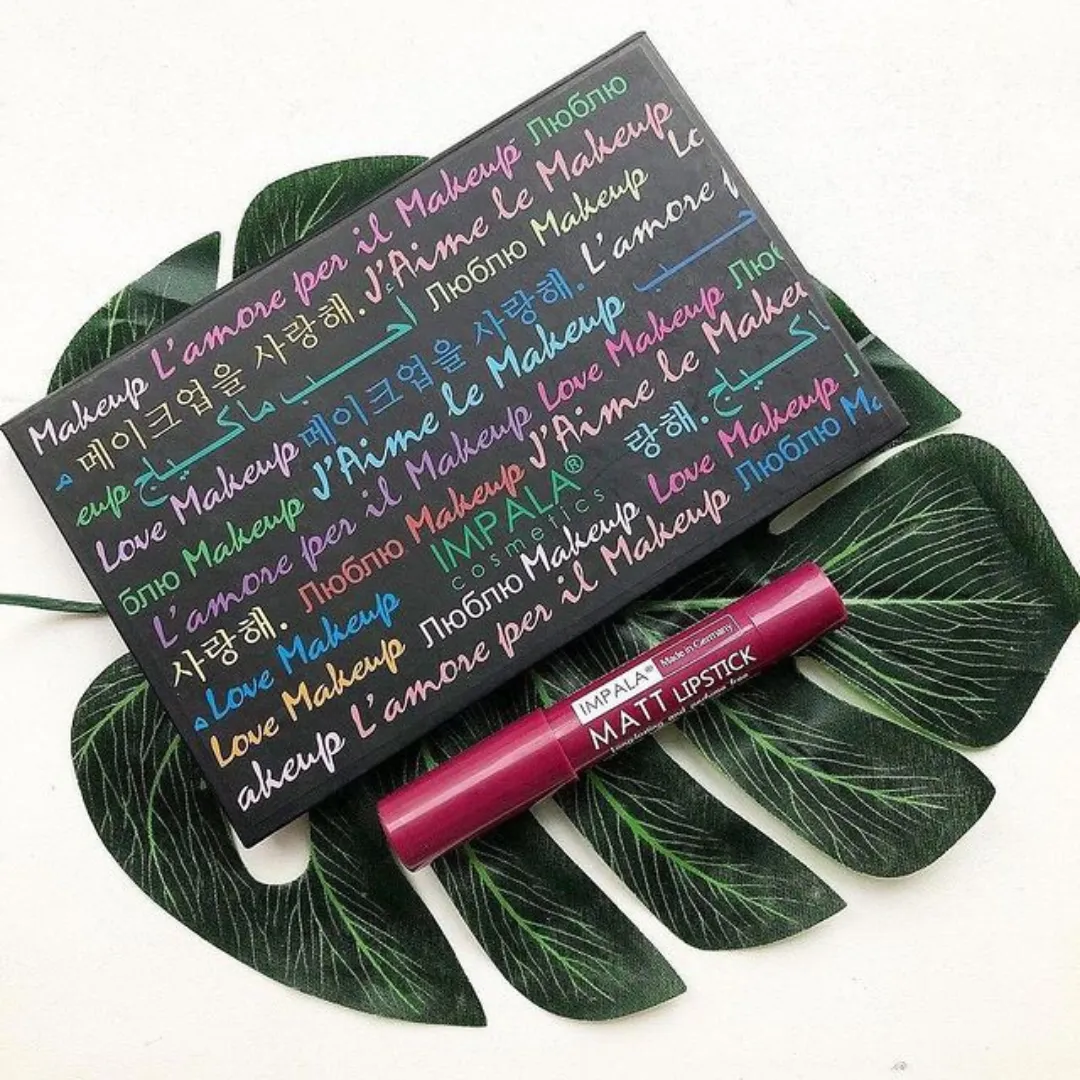 Makeup L'amore per il Makeup Люблю
메이크업을 사랑해. J'Aime le Makeup
eup أحب ماكياج Люблю Makeup Lo
Love Makeup 메이크업을 사랑해. L'amore
блю Makeup J'Aime le Makeup
L'amore per il Makeup Love Makeup Лю
사랑해. Люблю Makeup J'Aime le Makeu
Love Makeup IMPALA® 랑해.
cosmetics
Love Makeup Люблю Makeup Love Makeup
akeup L'amore per il Makeup Люблю Ma
IMPALA® Made in Germany
MATT LIPSTICK